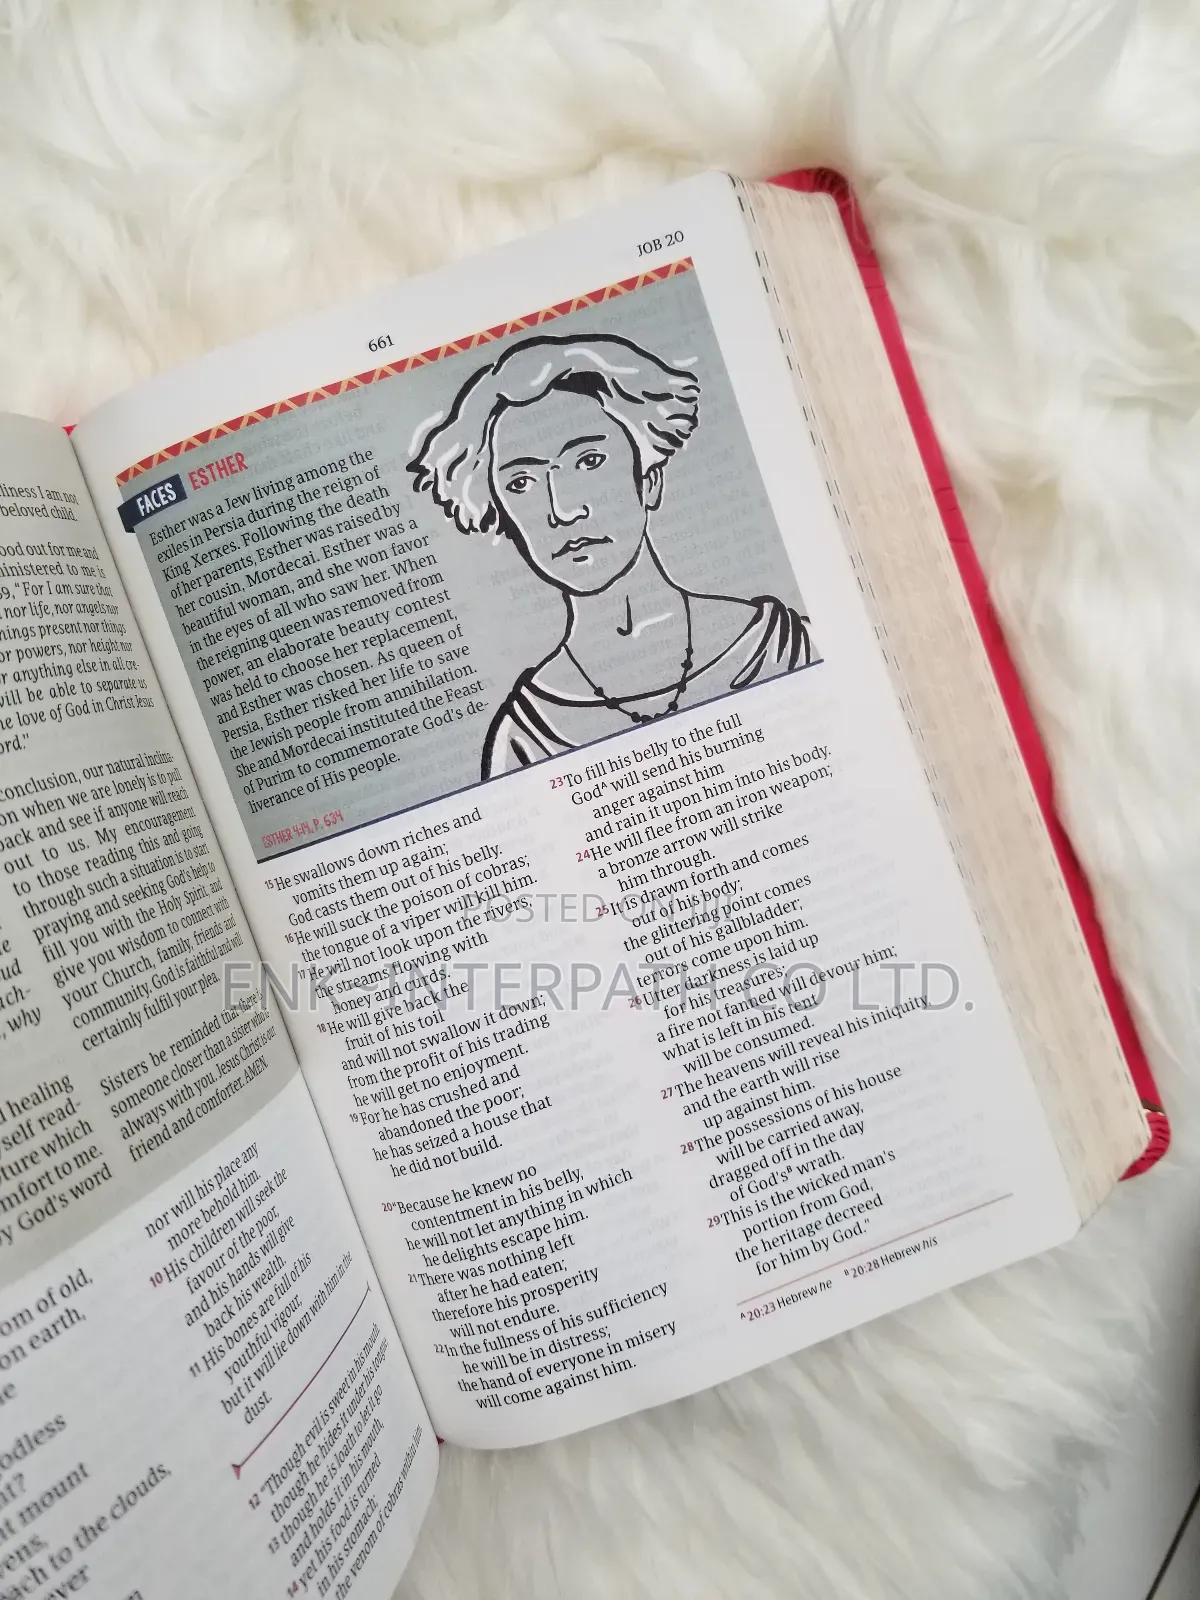 liness I am not
beloved child.
ood out for me and
ministered to me is
"For I am sure that
nor life, nor angels nor
things present nor things
or powers, nor height nor
r anything else in all cre-
will be able to separate us
he love of God in Christ Jesus
ord."
conclusion, our natural inclina-
on when we are lonely is to pull
back and see if anyone will reach
out to us. My encouragement
to those reading this and going
through such a situation is to start
praying and seeking God's help to
fill you with the Holy Spirit, and
give you wisdom to connect with
your Church, family, friends and
community. God is faithful and will
certainly fulfil your plea.
Sisters be reminded that there is
someone closer than a sister who is
always with you. Jesus Christ is our
friend and comforter. AMEN
why
healing
self read-
ture which
mfort to me.
by God's word
om of old,
on earth,
odless
mount
ach to the clouds,
nor will his place any
more behold him.
10 His children will seek the
favour of the poor,
and his hands will give
back his wealth.
11 His bones are full of his
youthful vigour,
but it will lie down with him in the
dust.
12 "Though evil is sweet in his mouth
though he hides it under his tongue,
13 though he is loath to let it go
and holds it in his mouth,
14 yet his food is turned
in his stomach;
the venom of cobras within him
661
JOB 20
FACES ESTHER
Esther was a Jew living among the
exiles in Persia during the reign of
King Xerxes. Following the death
of her parents, Esther was raised by
her cousin, Mordecai. Esther was a
beautiful woman, and she won favor
in the eyes of all who saw her. When
the reigning queen was removed from
power, an elaborate beauty contest
was held to choose her replacement,
and Esther was chosen. As queen of
Persia, Esther risked her life to save
the Jewish people from annihilation.
She and Mordecai instituted the Feast
of Purim to commemorate God's de-
liverance of His people.
ESTHER 4:14, P. 634
15 He swallows down riches and
vomits them up again;
God casts them out of his belly.
16 He will suck the poison of cobras;
the tongue of a viper will kill him.
17 He will not look upon the rivers,
the streams flowing with
honey and curds.
18 He will give back the
fruit of his toil
and will not swallow it down;
from the profit of his trading
he will get no enjoyment.
19 For he has crushed and
abandoned the poor;
he has seized a house that
he did not build.
20 "Because he knew no
contentment in his belly,
he will not let anything in which
he delights escape him.
21 There was nothing left
after he had eaten;
therefore his prosperity
will not endure.
22 In the fullness of his sufficiency
he will be in distress;
the hand of everyone in misery
will come against him.
23 To fill his belly to the full
GodA will send his burning
anger against him
and rain it upon him into his body.
24 He will flee from an iron weapon;
a bronze arrow will strike
him through.
25 It is drawn forth and comes
out of his body;
the glittering point comes
out of his gallbladder;
terrors come upon him.
26 Utter darkness is laid up
for his treasures;
a fire not fanned will devour him;
what is left in his tent
will be consumed.
27 The heavens will reveal his iniquity,
and the earth will rise
up against him.
28 The possessions of his house
will be carried away,
dragged off in the day
of God'sB wrath.
29 This is the wicked man's
portion from God,
the heritage decreed
for him by God."
A 20:23 Hebrew he B 20:28 Hebrew his
POSTED ON JIJI
ENK-INTERPATH CO LTD.